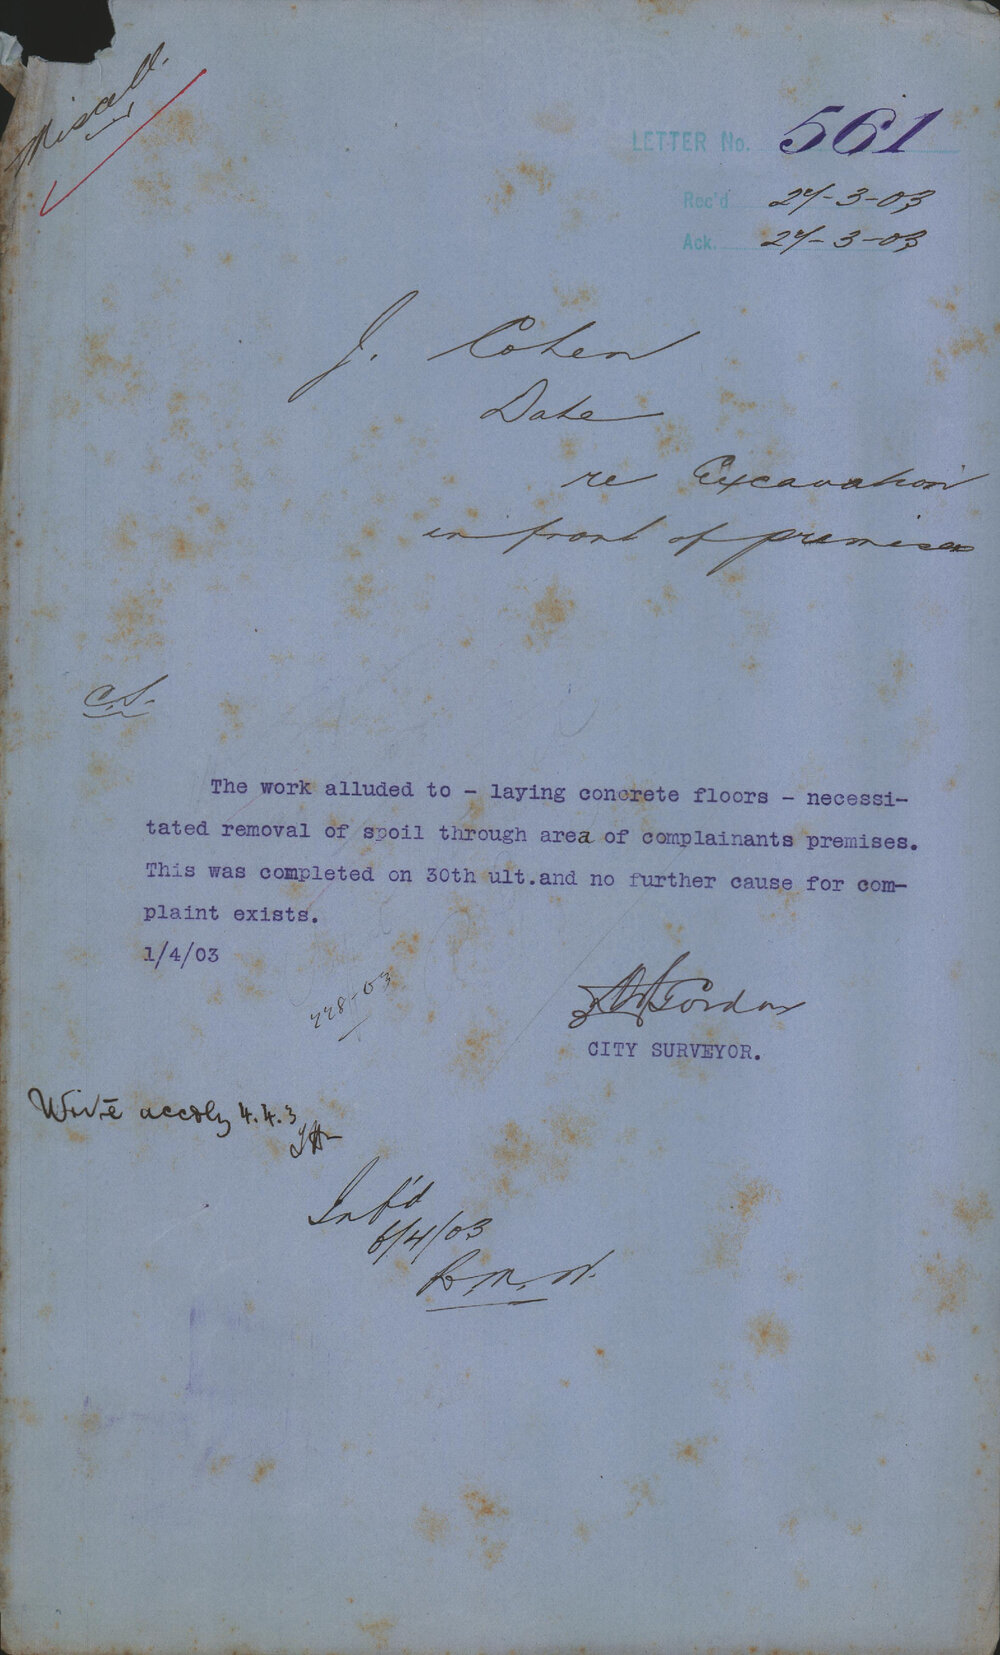 Miscell.
LETTER No. 561
Rec'd 27-3-03
Ack. 27-3-03
J. Cohen
Date
re Excavation
in front of premises
C.S.
The work alluded to - laying concrete floors - necessi-
tated removal of spoil through area of complainants premises.
This was completed on 30th ult.and no further cause for com-
plaint exists.
1/4/03
778-03
Gordon
CITY SURVEYOR.
Write accdly 4.4.3
Inf'd
6/4/03